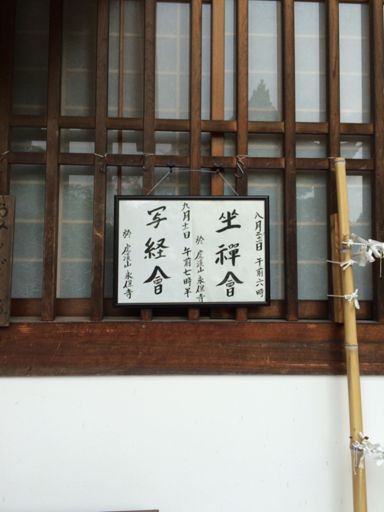 午前六時
坐禪會
於 虎溪山 永保寺
九月十一日 午前七時半
写経會
於 虎溪山 永保寺